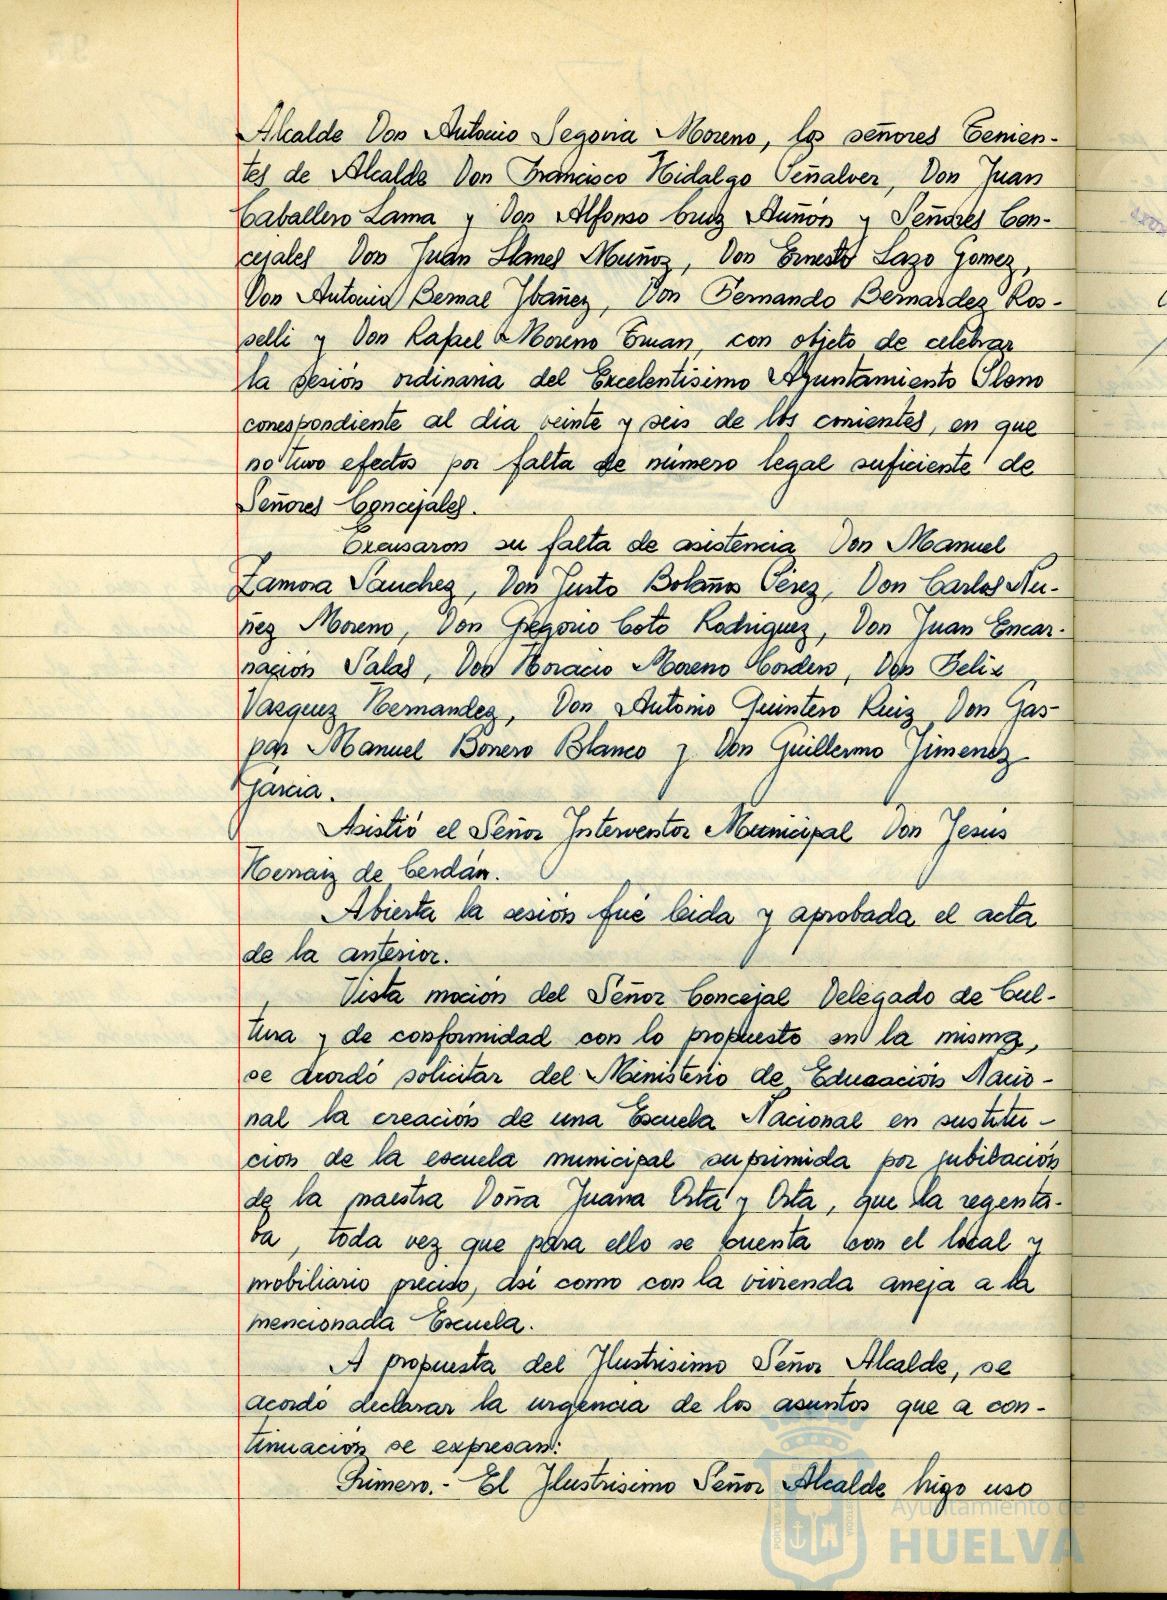 Alcalde Don Antonio Segovia Moreno, los señores Tenien-
tes de Alcalde Don Francisco Hidalgo Peñalver, Don Juan
Caballero Lama y Don Alfonso Cruz Auñón y Señores Con-
cejales Don Juan Llanes Muñoz, Don Ernesto Lazo Gomez,
Don Antonio Bernal Ybañez, Don Fernando Bernardez Ros-
selli y Don Rafael Moreno, con objeto de celebrar
la sesión ordinaria del Excelentisimo Ayuntamiento Pleno
correspondiente al dia veinte y seis de los corrientes, en que
no tuvo efectos por falta de número legal suficiente de
Señores Concejales.
Excusaron su falta de asistencia Don Manuel
Zamora Sanchez, Don Justo Bolaños Pérez, Don Carlos Nu-
ñez Moreno, Don Gregorio Coto Rodriguez, Don Juan Encar-
nación Salas, Don Horacio Moreno Cordero, Don Felix
Vazquez Hernandez, Don Antonio Quintero Ruiz, Don Gas-
par Manuel Bonero Blanco y Don Guillermo Jimenez
Garcia.
Asistió el Señor Interventor Municipal Don Jesús
Herraiz de Cerdán.
Abierta la sesión fué leida y aprobada el acta
de la anterior.
Vista moción del Señor Concejal Delegado de Cul-
tura y de conformidad con lo propuesto en la misma,
se acordó solicitar del Ministerio de Educación Nacio-
nal la creación de una Escuela Nacional en sustitu-
cion de la escuela municipal suprimida por jubilación
de la maestra Doña Juana Orta y Orta, que la regenta-
ba, toda vez que para ello se cuenta con el local y
mobiliario preciso, asi como con la vivienda aneja a la
mencionada Escuela.
A propuesta del Ilustrisimo Señor Alcalde, se
acordó declarar la urgencia de los asuntos que a con-
tinuación se expresan:
Primero.- El Ilustrisimo Señor Alcalde hizo uso
Ayuntamiento de
HUELVA